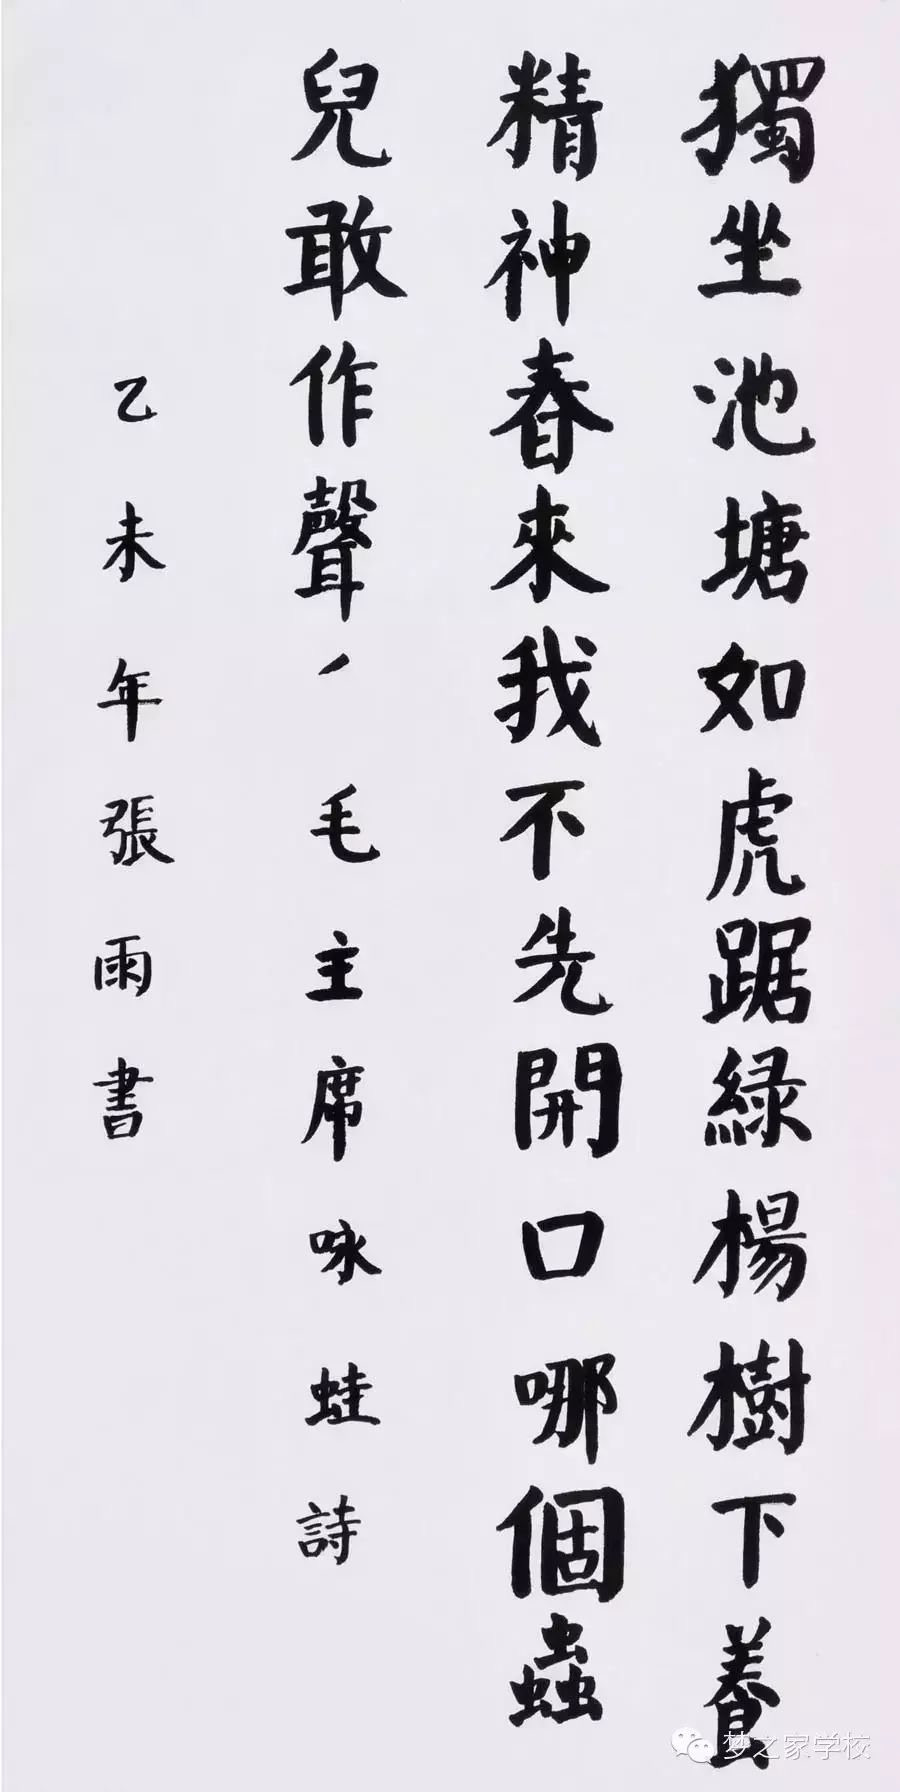 獨坐池塘如虎踞綠楊樹下養
精神春來我不先開口哪個蟲
兒敢作聲 毛主席咏蛙詩
乙未年張雨書
梦之家学校